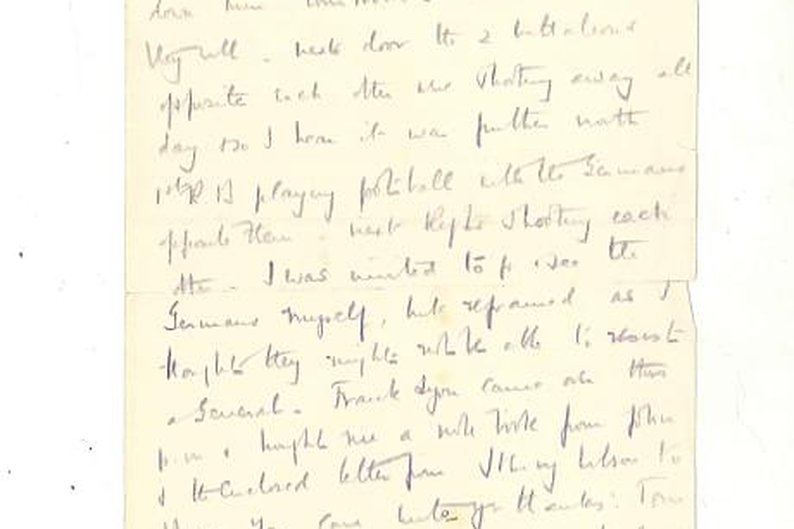 down here
Very well - next door the 2 battalions
opposite each other were shooting away all
day & so I hear it was further north
1st R.B. playing football with the Germans
opposite them - next Regts shooting each
other. I was invited to go & see the
Germans myself, but refrained as I
thought they might not be able to resist
a General. Frank Lyon came over this
p.m. & brought me a note book from John
& the enclosed letter from
you can thanks. Tom